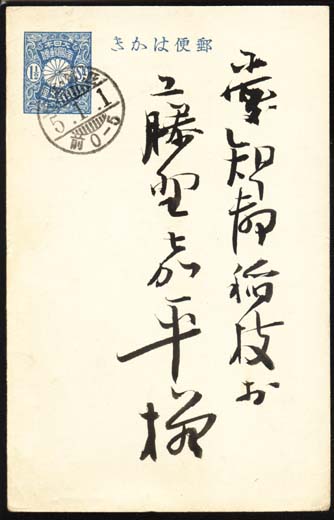 郵便はかき
愛知郡稲枝村
藤野嘉平様
1½
5.1.1
前0-5